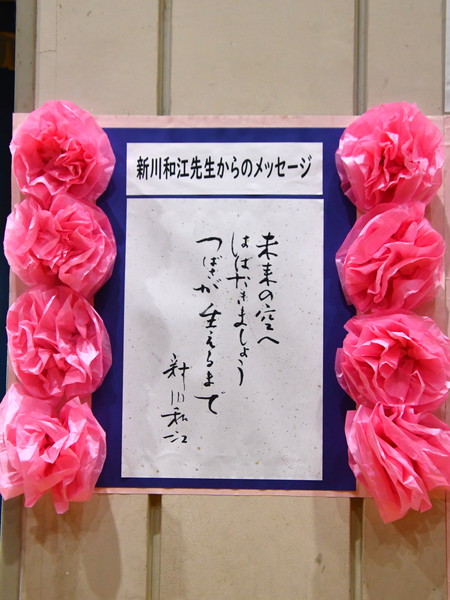 新川和江先生からのメッセージ
未来の空へ
はばたきましょう
つばさが 生えるまで
新川和江